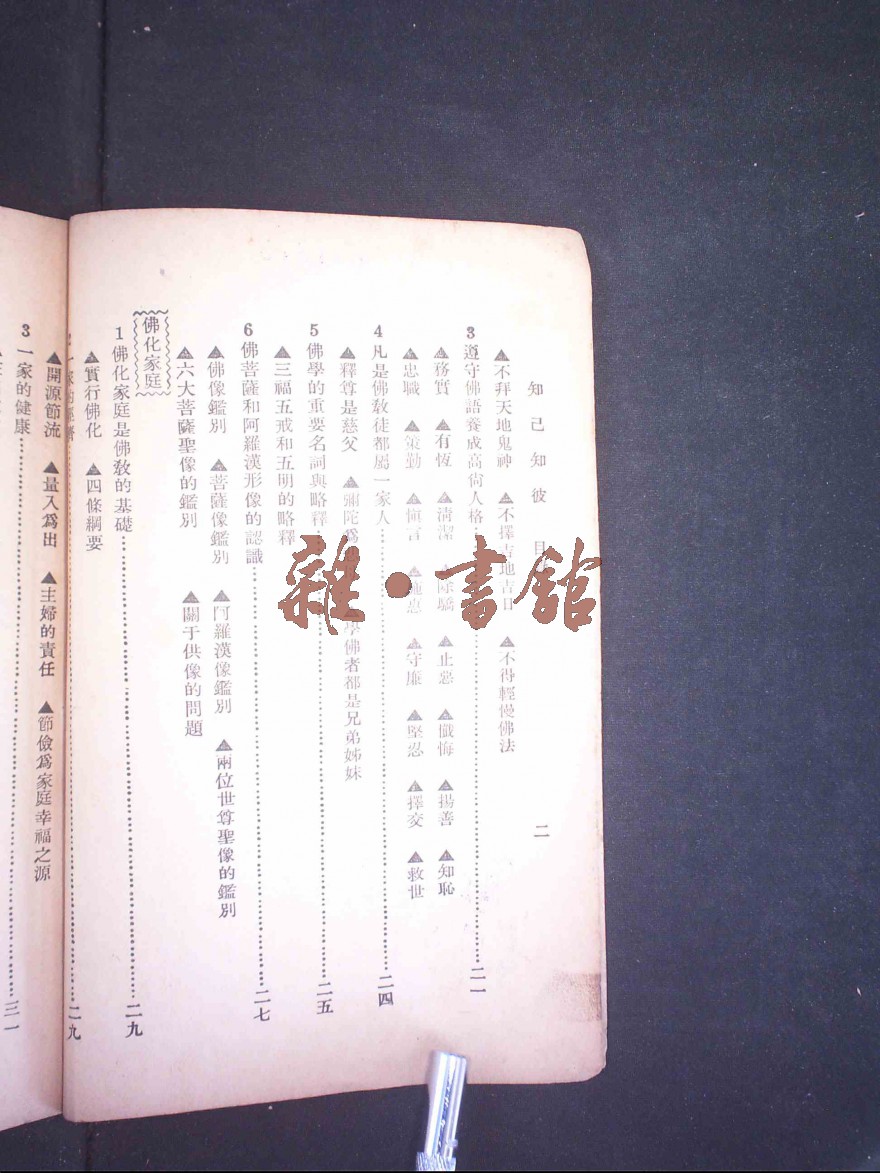 知己知彼　目　二
▲不拜天地鬼神　▲不擇吉地吉日　▲不得輕慢佛法
3 遵守佛語養成高尙人格……二一
▲務實　▲有恆　▲淸潔　▲除驕　▲止惡　▲懺悔　▲揚善　▲知恥
▲忠職　▲策勤　▲愼言　▲施惠　▲守廉　▲堅忍　▲擇交　▲救世
4 凡是佛敎徒都屬一家人……二四
▲釋尊是慈父　▲彌陀爲　▲學佛者都是兄弟姊妹
5 佛學的重要名詞與略釋……二五
▲三福五戒和五明的略釋
6 佛菩薩和阿羅漢形像的認識……二七
▲佛像鑑別　▲菩薩像鑑別　▲阿羅漢像鑑別　▲兩位世尊聖像的鑑別
▲六大菩薩聖像的鑑別　▲關于供像的問題
佛化家庭
1 佛化家庭是佛敎的基礎……二九
▲實行佛化　▲四條綱要
2 一家的經濟……二九
▲開源節流　▲量入爲出　▲主婦的責任　▲節儉爲家庭幸福之源
3 一家的健康……三一
雜·書館